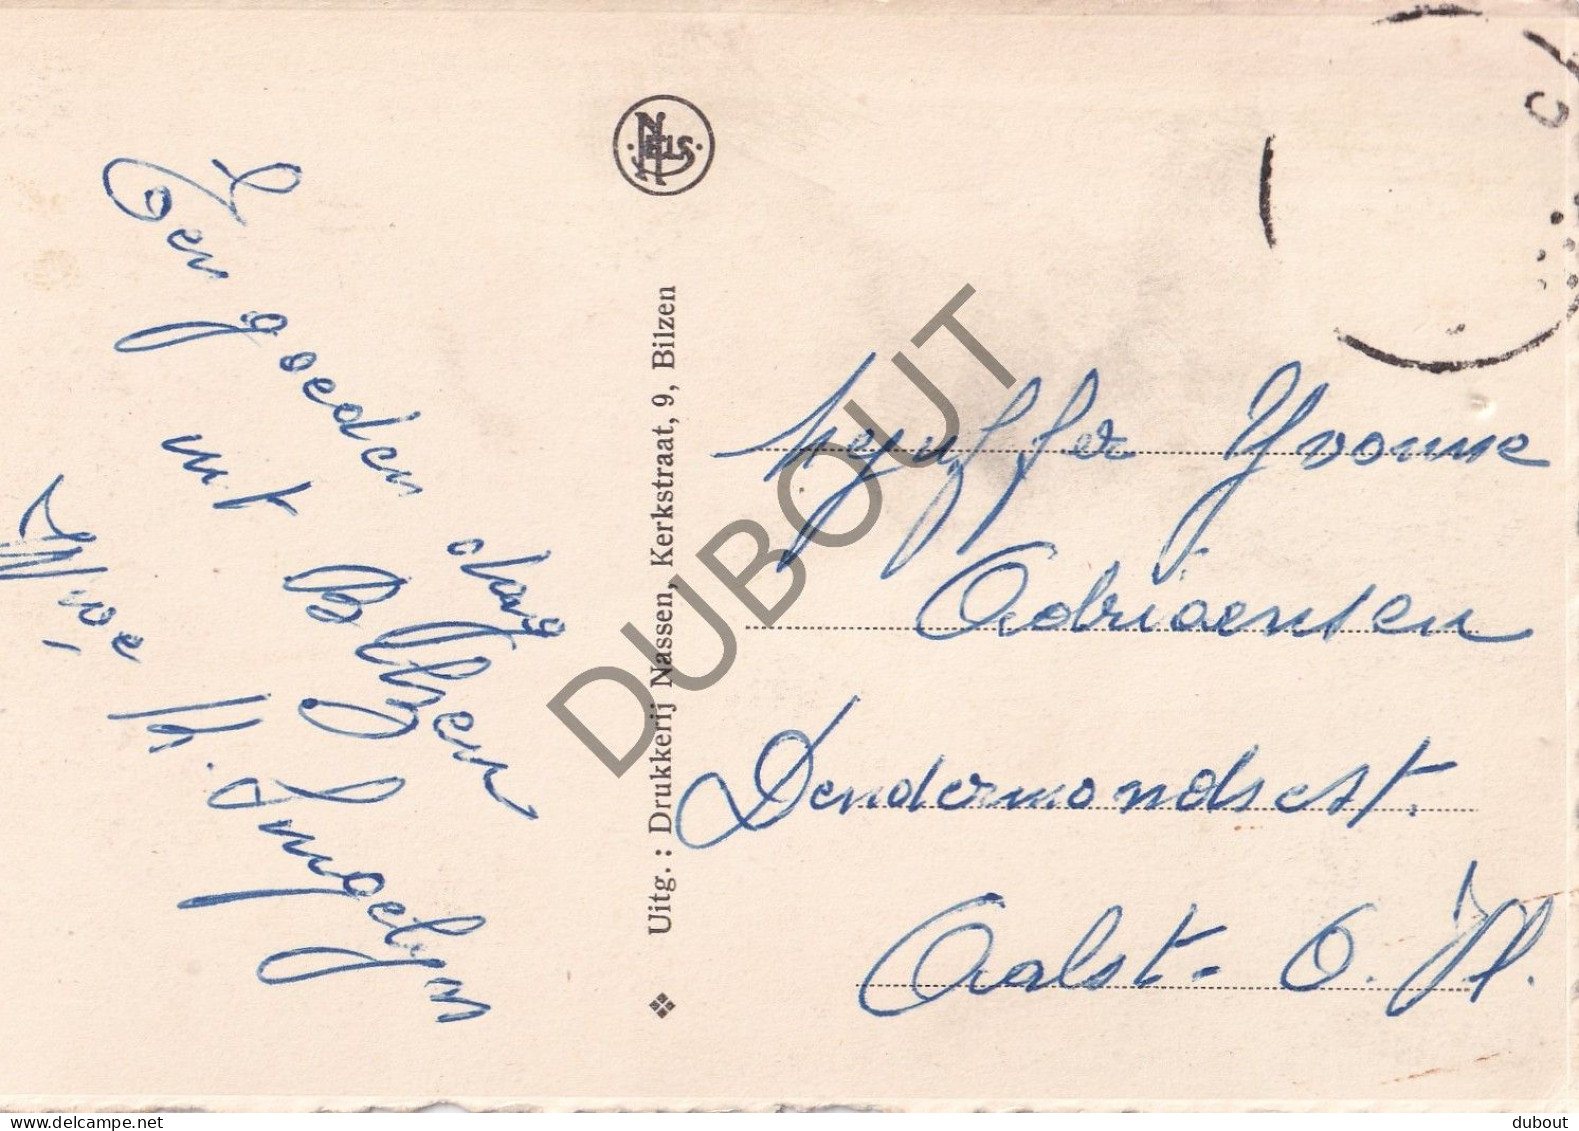 Een goeden dag
uit Bilzen
Mre
H. Ingelgem
NELS
Uitg. : Drukkerij Nassen, Kerkstraat, 9, Bilzen
Mejuffer Yvonne
Adriaensen
Dendermondsest.
Aalst - O. Vl.
DUBOUT
dubout